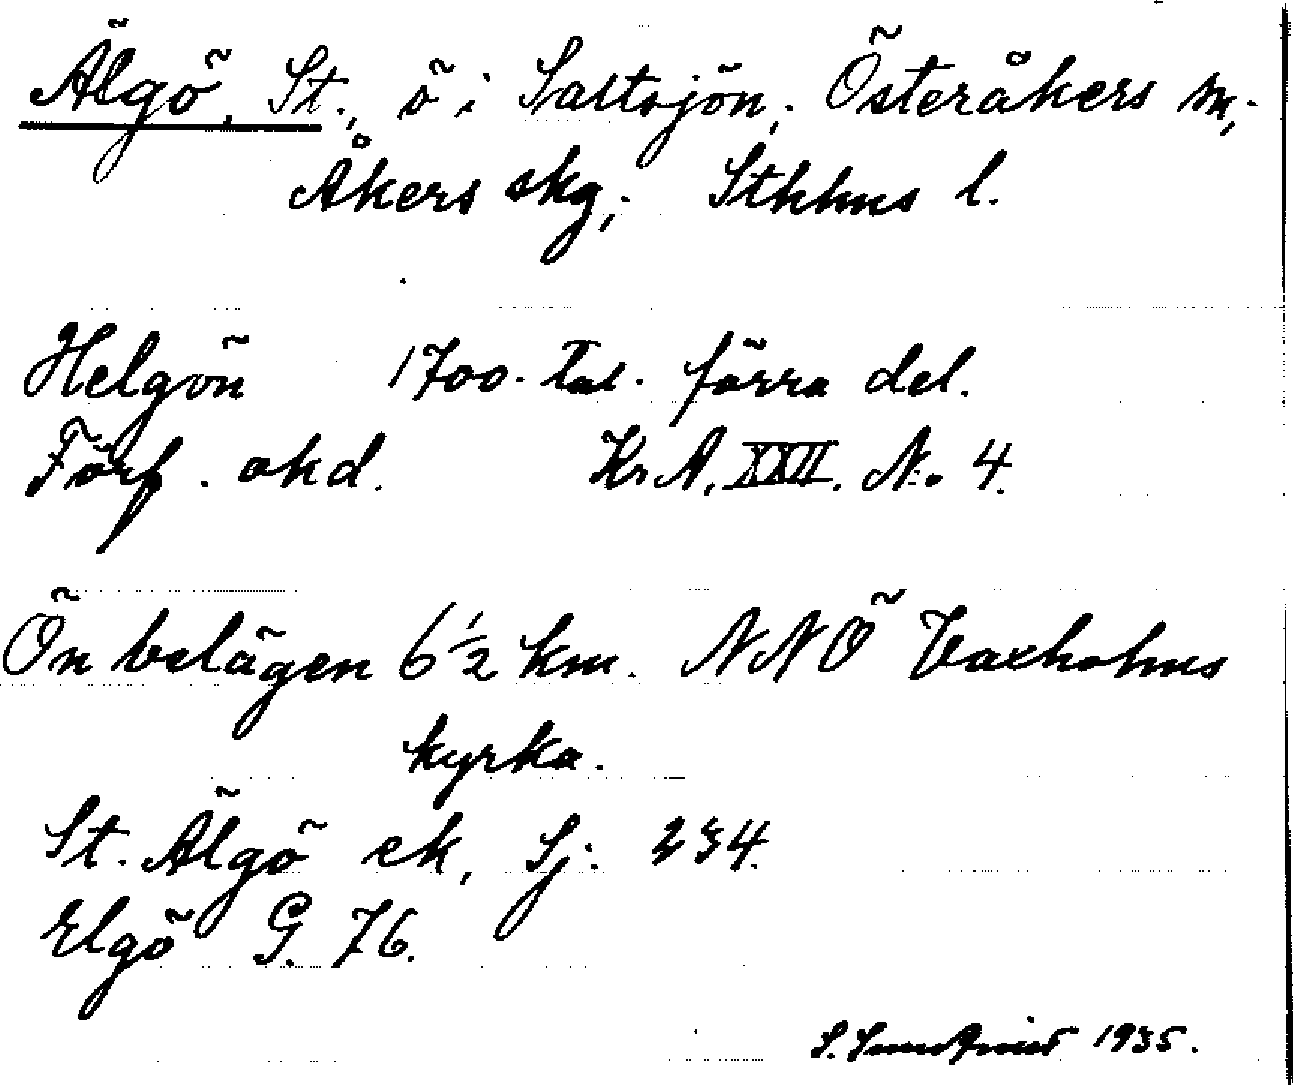 Älgö, St., ö i Saltsjön; Österåkers sn;
Åkers skg; Sthlms l.
Helgön 1700-tal. förra del.
Förf. okd. Kr A. XXII. No 4.
Ön belägen 6 1/2 km. NNÖ Vaxholms
kyrka.
St. Älgö ek, Sj. 234.
Elgö G. 76.
S. 1935.